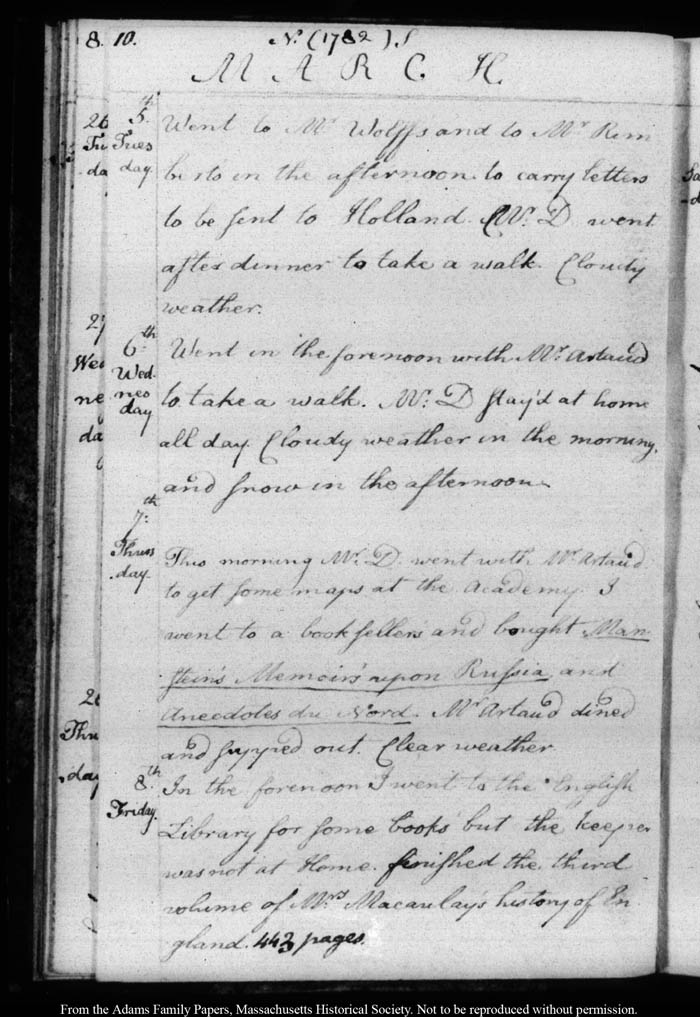 8. 10. N. (1782) S
MARCH.
26
Tu
da
5.th
Tues
day.
Went to Mr. Wolffs and to Mr. Rim
berts in the afternoon to carry letters
to be sent to Holland. Mr. D. went
after dinner to take a walk. Cloudy
weather.
27
Wed
ne
da
6th
Wed.
nes
day
Went in the forenoon with Mr. Artaud
to take a walk. Mr. D stay'd at home
all day. Cloudy weather in the morning,
and snow in the afternoon.
7th:
Thurs
day.
This morning Mr. D. went with Mr. Artaud
to get some maps at the Academy. I
went to a booksellers and bought Man
stein's Memoirs upon Russia and
Anecdotes du Nord. Mr Artaud dined
and supped out. Clear weather.
28
Thu
day
8.th
Friday.
In the forenoon I went to the English
Library for some books but the keeper
was not at Home. finished the third
volume of Mrs. Macaulay's history of En
gland. 443 pages.
From the Adams Family Papers, Massachusetts Historical Society. Not to be reproduced without permission.